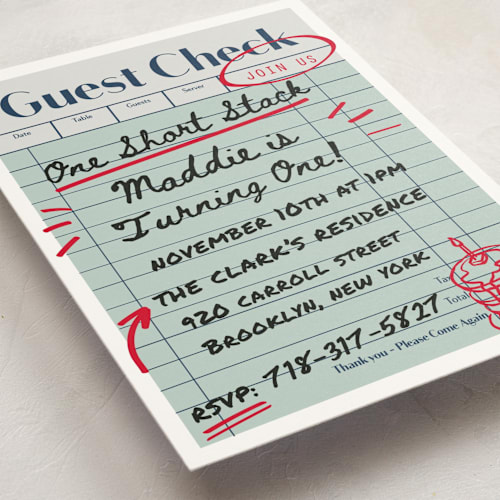 Guest Check
JOIN US
Date Table Guests Server
One Short Stack
Maddie is
Turning One!
NOVEMBER 10TH AT 1PM
THE CLARK'S RESIDENCE
920 CARROLL STREET
BROOKLYN, NEW YORK
Tax
Total
RSVP: 718-317-5827
Thank you - Please Come Again